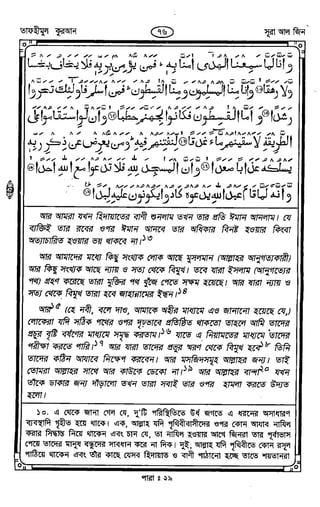 তাফহীমুল কুরআন
৭৬
সূরা আল জিন
وَّاَنَّا لَمَّا سَمِعْنَا الْهُدٰٓى اٰمَنَّا بِهٖ ؕ فَمَنْ يُّؤْمِنْۢ بِرَبِّهٖ فَلَا يَخَافُ بَخْسًا
وَّلَا رَهَقًا ۙ وَّاَنَّا مِنَّا الْمُسْلِمُوْنَ وَمِنَّا الْقٰسِطُوْنَ ؕ فَمَنْ اَسْلَمَ فَاُولٰٓئِكَ تَحَرَّوْا
رَشَدًا وَاَمَّا الْقٰسِطُوْنَ فَكَانُوْا لِجَهَنَّمَ حَطَبًا ۙ وَّاَنْ لَّوِ اسْتَقَامُوْا عَلَى
الطَّرِيْقَةِ لَاَسْقَيْنٰهُمْ مَّآءً غَدَقًا ۙ لِّنَفْتِنَهُمْ فِيْهِ ؕ وَمَنْ يُّعْرِضْ عَنْ ذِكْرِ رَبِّهٖ
يَسْلُكْهُ عَذَابًا صَعَدًا ۙ وَّاَنَّ الْمَسٰجِدَ لِلّٰهِ فَلَا تَدْعُوْا مَعَ اللّٰهِ اَحَدًا ۙ
وَّاَنَّهٗ لَمَّا قَامَ عَبْدُ اللّٰهِ يَدْعُوْهُ كَادُوْا يَكُوْنُوْنَ عَلَيْهِ لِبَدًا
আর আমরা যখন হিদায়াতের বাণী শুনলাম তখন তার প্রতি ঈমান আনলাম। যে
ব্যক্তিই তার রবের ওপর ঈমান আনবে তার অধিকার বিনষ্ট হওয়ার কিংবা
অত্যাচারিত হওয়ার ভয় থাকবে না।১৩
আর আমাদের মধ্যে কিছু সংখ্যক লোক আছে মুসলমান (আল্লাহর আনুগত্যকারী)
আর কিছু সংখ্যক লোক আছে ন্যায় ও সত্য থেকে বিমুখ। তবে যারা ইসলাম (আনুগত্যের
পথ) গ্রহণ করেছে তারা মুক্তির পথ খুঁজে পেতে সক্ষম হয়েছে। আর যারা ন্যায় ও
সত্য থেকে বিমুখ তারা হবে জাহান্নামের ইন্ধন।১৪
আর১৫ (হে নবী, বলে দাও, আমাকে অহীর মাধ্যমে এও জানানো হয়েছে যে,)
লোকেরা যদি সঠিক পথের ওপর দৃঢ়ভাবে প্রতিষ্ঠিত থাকতো তাহলে আমি তাদের
প্রচুর বৃষ্টি বর্ষণের মাধ্যমে সমৃদ্ধ করতাম।১৬ যাতে এ নিয়ামতের মাধ্যমে তাদের
পরীক্ষা করতে পারি।১৭ আর যারা তাদের প্রভুর স্মরণ থেকে বিমুখ হবে১৮ তিনি
তাদের কঠিন আযাবে নিক্ষেপ করবেন। আর মসজিদসমূহ আল্লাহর জন্য। তাই
তোমরা আল্লাহর সাথে আর কাউকে ডেকো না।১৯ আর আল্লাহর বান্দা২০ যখন
তাঁকে ডাকার জন্য দাঁড়ালো তখন তারা সবাই তার ওপর হামলা করতে উদ্যত
হলো।
১০. এ থেকে জানা গেল যে, দু'টি পরিস্থিতিতে উর্ধ জগতে এ ধরনের অসাধারণ
ব্যবস্থাদি গৃহীত হয়ে থাকে। এক, আল্লাহ যদি পৃথিবীবাসীদের ওপর কোন আযাব নাযিল
করার সিদ্ধান্ত নিয়ে থাকেন এবং চান যে, তা নাযিল হওয়ার আগে জিনরা তার পূর্বাভাস
পেয়ে তাদের মানুষ বন্ধুদের সাবধান করে না দিক। দুই, আল্লাহ যদি পৃথিবীতে কোন রসূল
পাঠিয়ে থাকেন এবং তাঁর কাছে যেসব হিদায়াত ও বাণী পাঠানো হচ্ছে তাতে শয়তানরা
পারা : ২৯